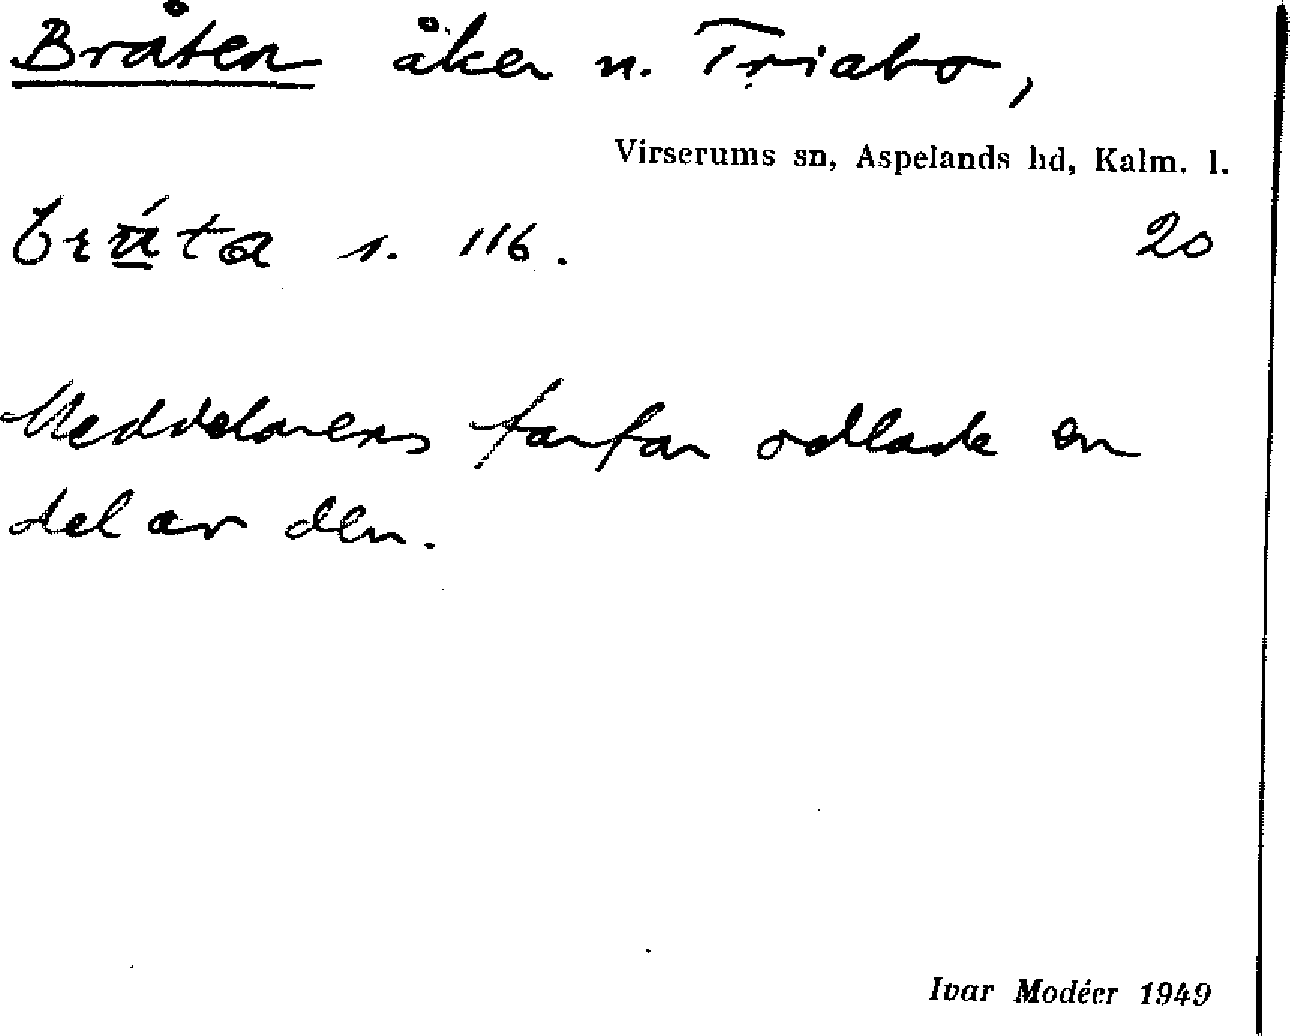 Bråten åker n. Triabo,
Virserums sn, Aspelands hd, Kalm. l.
s. 116. 20
Meddelarens farfar odlade en
del av den.
Ivar Modéer 1949